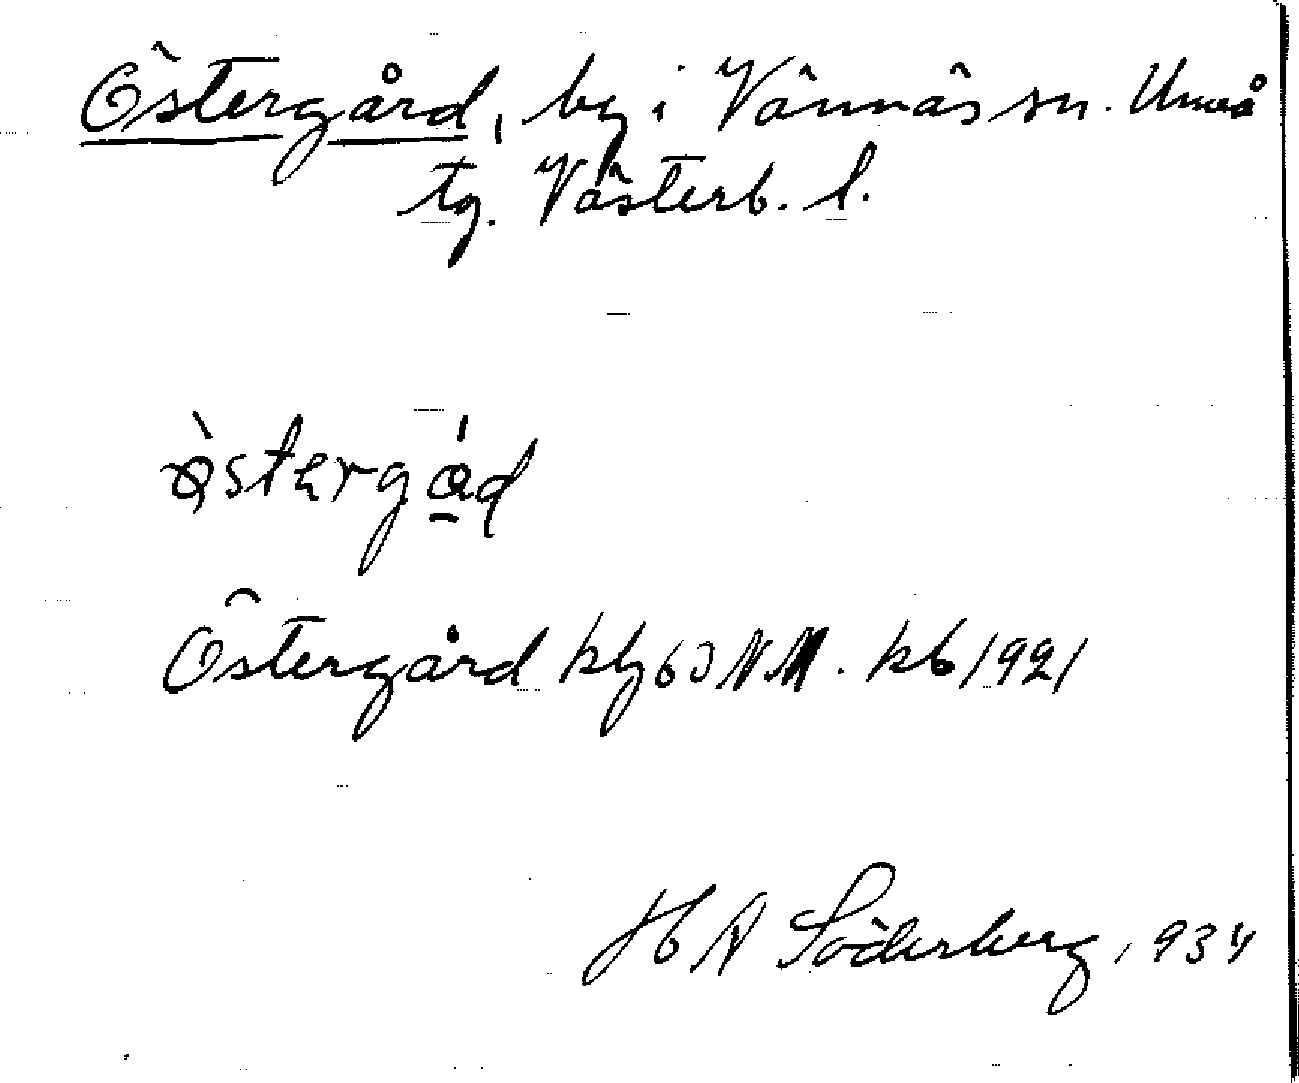 Östergård, by i Vännäs sn. Umeå
tg. Västerb. l.
Östergård kbg 63 NV. kb 1921
H A Söderberg, 934